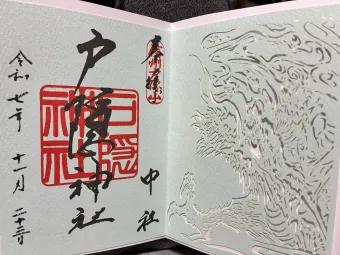 奉拝
中社
戸隠神社
戸隠
神社
令和七年 十一月 二十三日